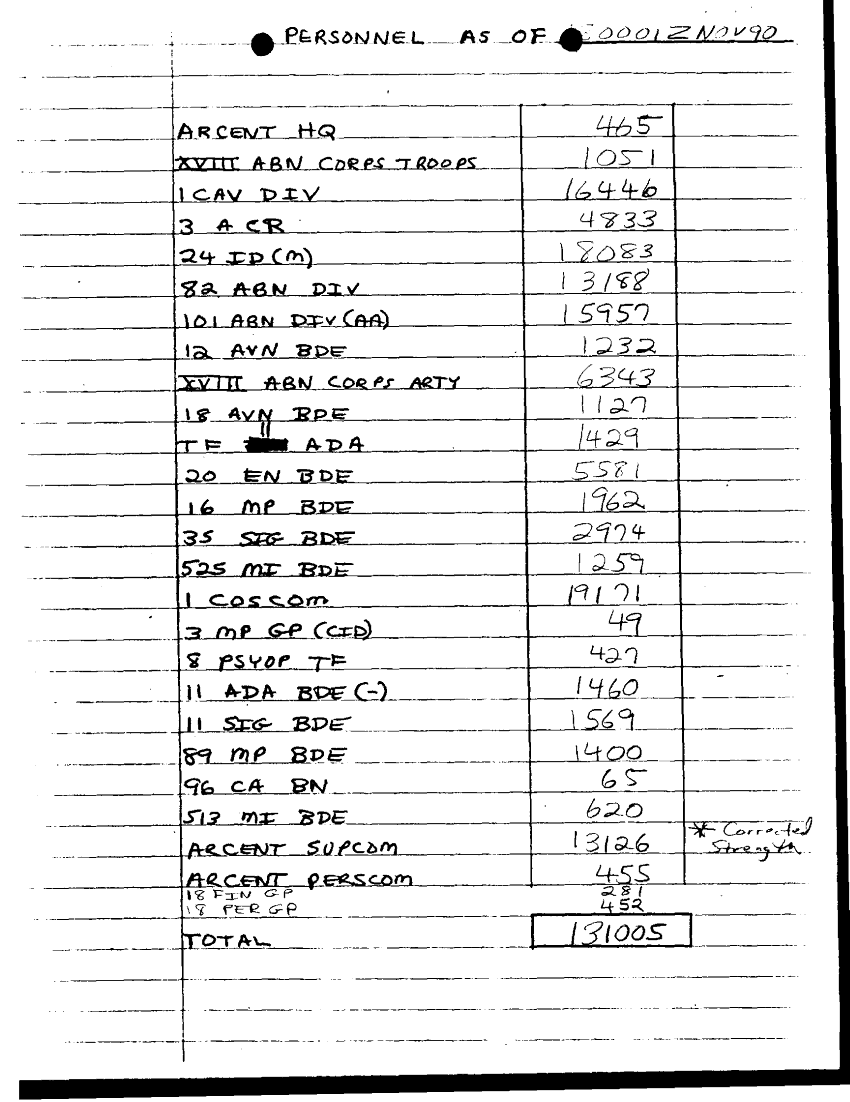 PERSONNEL AS OF 0001Z NOV90
ARCENT HQ 465
XVIII ABN CORPS TROOPS 1051
1 CAV DIV 16446
3 ACR 4833
24 ID(M) 18083
82 ABN DIV 13188
101 ABN DIV(AA) 15957
12 AVN BDE 1232
XVIII ABN CORPS ARTY 6343
18 AVN BDE 1127
TF 11 ADA 1429
20 EN BDE 5581
16 MP BDE 1962
35 SIG BDE 2974
525 MI BDE 1259
1 COSCOM 19171
3 MP GP (CID) 49
8 PSYOP TF 427
11 ADA BDE (-) 1460
11 SIG BDE 1569
89 MP BDE 1400
96 CA BN 65
513 MI BDE 620
ARCENT SUPCOM 13126 * Corrected
Strength
ARCENT PERSCOM 455
18 FIN GP 281
18 PER GP 452
TOTAL 131005